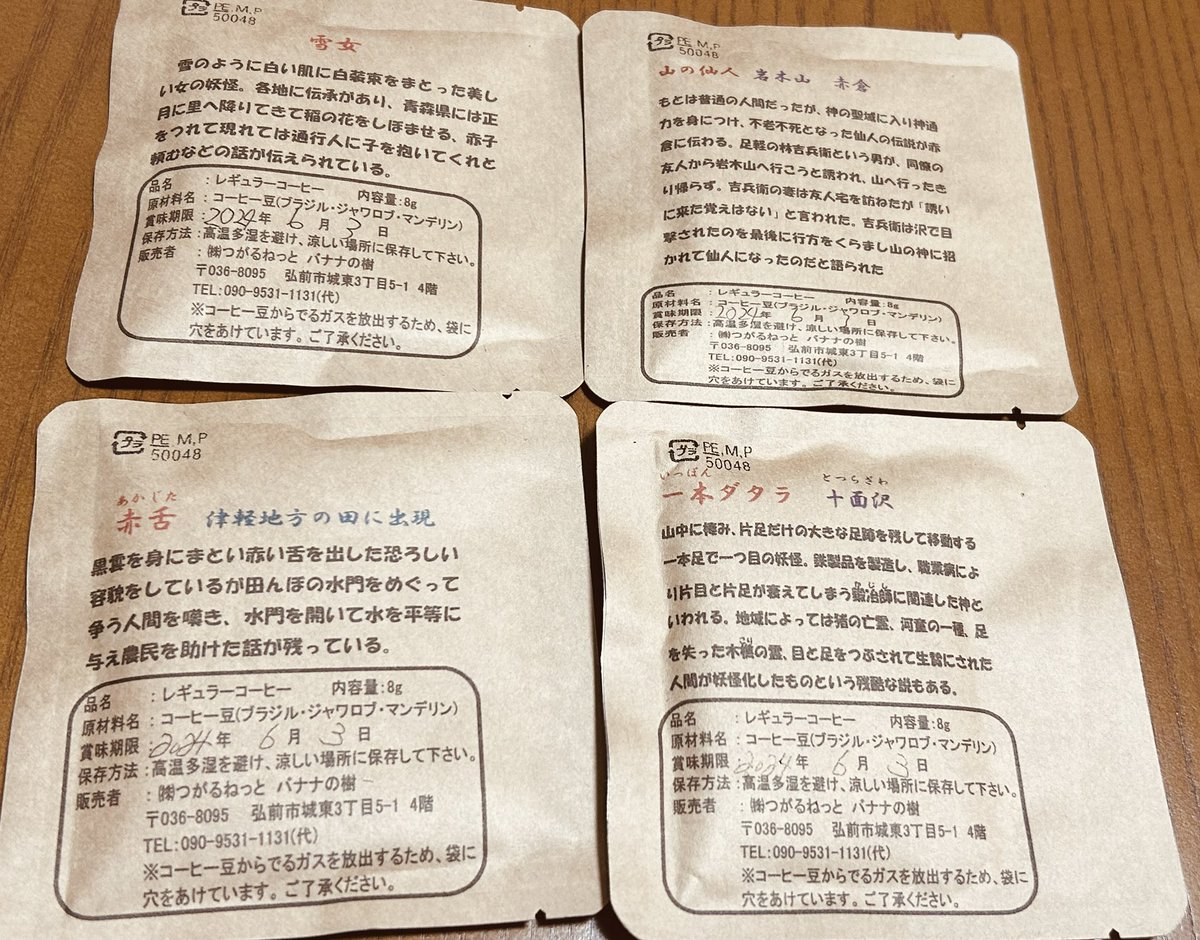 プラ PE,M,P
50048
雪女
雪のように白い肌に白装束をまとった美し
い女の妖怪。各地に伝承があり、青森県には正
月に里へ降りてきて稲の花をしぼませる、赤子
をつれて現れては通行人に子を抱いてくれと
頼むなどの話が伝えられている。
品名 : レギュラーコーヒー 内容量:8g
原材料名 : コーヒー豆(ブラジル・ジャワロブ・マンデリン)
賞味期限 : 2024年 6 月 3 日
保存方法 : 高温多湿を避け、涼しい場所に保存して下さい。
販売者 : ㈱つがるねっと バナナの樹
〒036-8095 弘前市城東3丁目5-1 4階
TEL:090-9531-1131(代)
※コーヒー豆からでるガスを放出するため、袋に
穴をあけています。ご了承ください。
プラ PE,M,P
50048
山の仙人 岩木山 赤倉
もとは普通の人間だったが、神の聖域に入り神通
力を身につけ、不老不死となった仙人の伝説が赤
倉に伝わる。足軽の林吉兵衛という男が、同僚の
友人から岩木山へ行こうと誘われ、山へ行ったき
り帰らず。吉兵衛の妻は友人宅を訪ねたが「誘い
に来た覚えはない」と言われた。吉兵衛は沢で目
撃されたのを最後に行方をくらまし山の神に招
かれて仙人になったのだと語られた
品名 : レギュラーコーヒー 内容量:8g
原材料名 : コーヒー豆(ブラジル・ジャワロブ・マンデリン)
賞味期限 : 2024年 6 月 3 日
保存方法 : 高温多湿を避け、涼しい場所に保存して下さい。
販売者 : ㈱つがるねっと バナナの樹
〒036-8095 弘前市城東3丁目5-1 4階
TEL:090-9531-1131(代)
※コーヒー豆からでるガスを放出するため、袋に
穴をあけています。ご了承ください。
プラ PE,M,P
50048
あかじた
赤舌 津軽地方の田に出現
黒雲を身にまとい赤い舌を出した恐ろしい
容貌をしているが田んぼの水門をめぐって
争う人間を嘆き、水門を開いて水を平等に
与え農民を助けた話が残っている。
品名 : レギュラーコーヒー 内容量:8g
原材料名 : コーヒー豆(ブラジル・ジャワロブ・マンデリン)
賞味期限 : 2024年 6 月 3 日
保存方法 : 高温多湿を避け、涼しい場所に保存して下さい。
販売者 : ㈱つがるねっと バナナの樹
〒036-8095 弘前市城東3丁目5-1 4階
TEL:090-9531-1131(代)
※コーヒー豆からでるガスを放出するため、袋に
穴をあけています。ご了承ください。
プラ PE,M,P
50048
いっぽん とつらざわ
一本ダタラ 十面沢
山中に棲み、片足だけの大きな足跡を残して移動する
一本足で一つ目の妖怪。鉄製品を製造し、職業病によ
り片目と片足が衰えてしまう鍛冶師に関連した神と
かじし
いわれる。地域によっては猪の亡霊、河童の一種、足
を失った木樵の霊、目と足をつぶされて生贄にされた
こり
人間が妖怪化したものという残酷な説もある。
品名 : レギュラーコーヒー 内容量:8g
原材料名 : コーヒー豆(ブラジル・ジャワロブ・マンデリン)
賞味期限 : 2024年 6 月 3 日
保存方法 : 高温多湿を避け、涼しい場所に保存して下さい。
販売者 : ㈱つがるねっと バナナの樹
〒036-8095 弘前市城東3丁目5-1 4階
TEL:090-9531-1131(代)
※コーヒー豆からでるガスを放出するため、袋に
穴をあけています。ご了承ください。